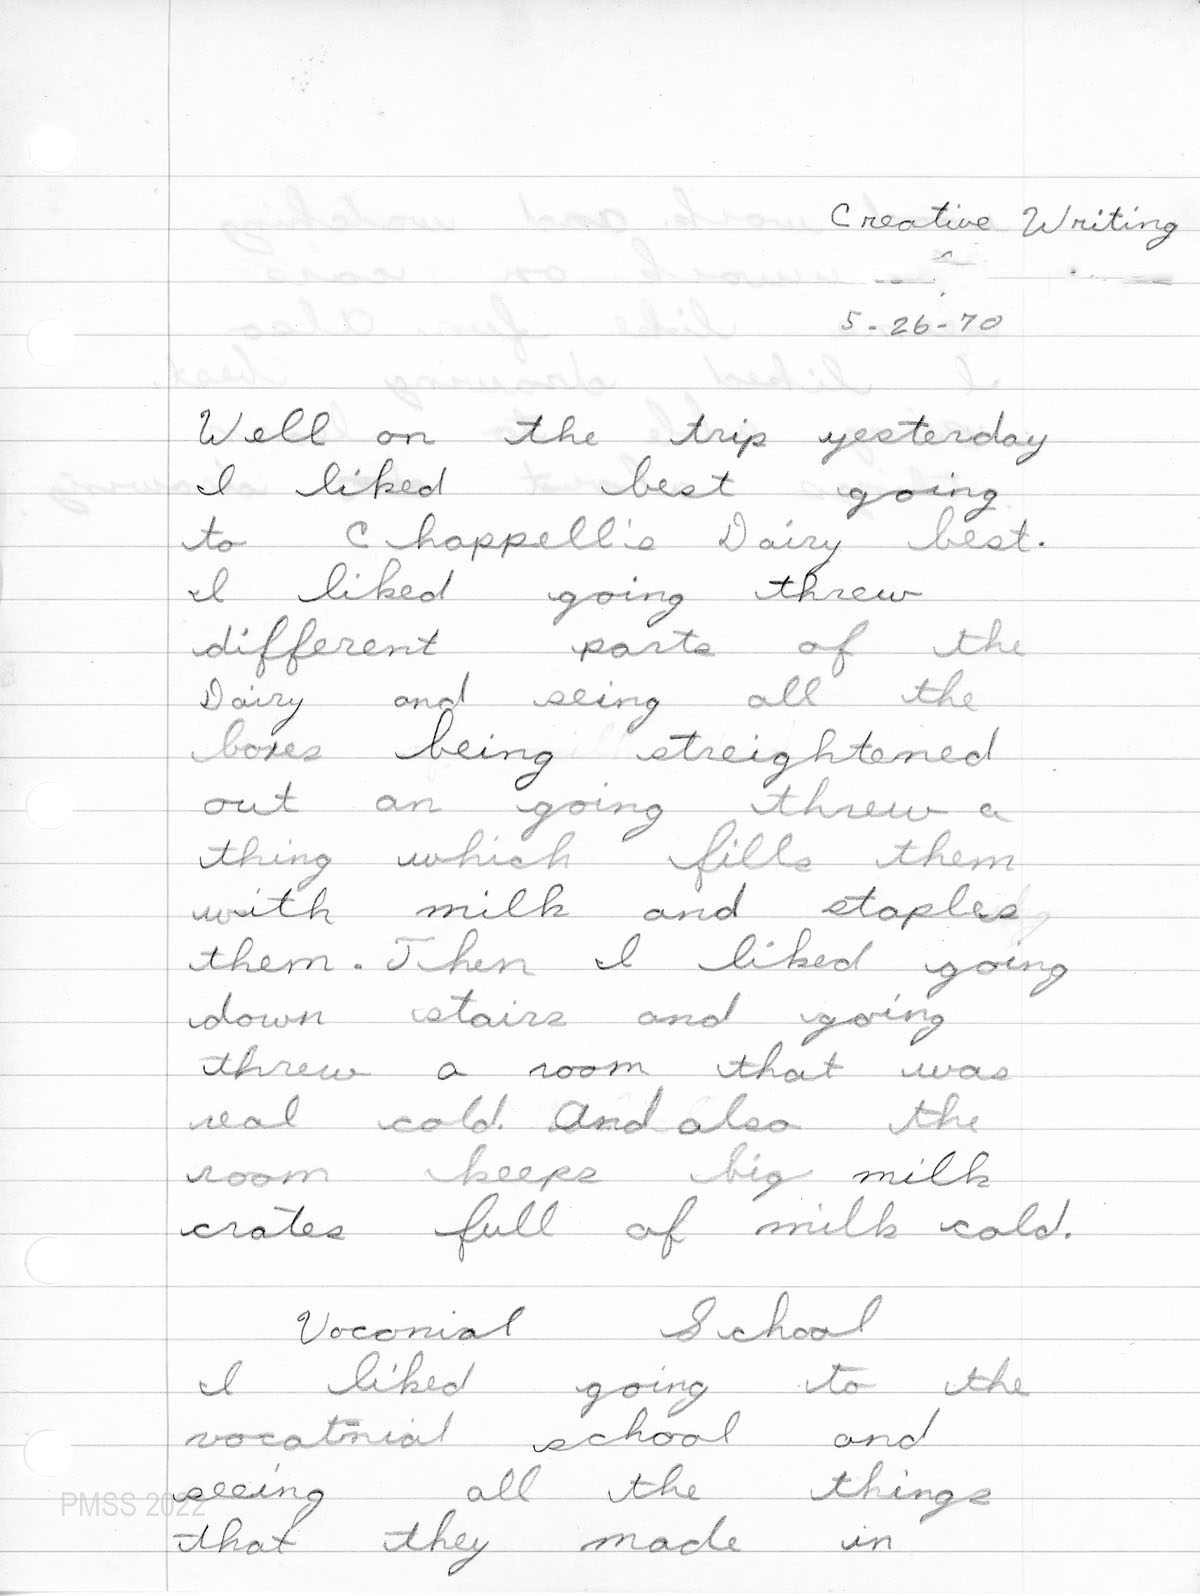 Creative Writing
5-26-70
Well on the trip yesterday
I liked best going
to Chappell's Dairy best.
I liked going threw
different parts of the
Dairy and seing all the
boxes being streightened
out an going threw a
thing which fills them
with milk and staples
them. Then I liked going
down stairs and going
threw a room that was
real cold. And also the
room keeps big milk
crates full of milk cold.
Voconial School
I liked going to the
vocatnial school and
seeing all the things
that they made in
PMSS 2022